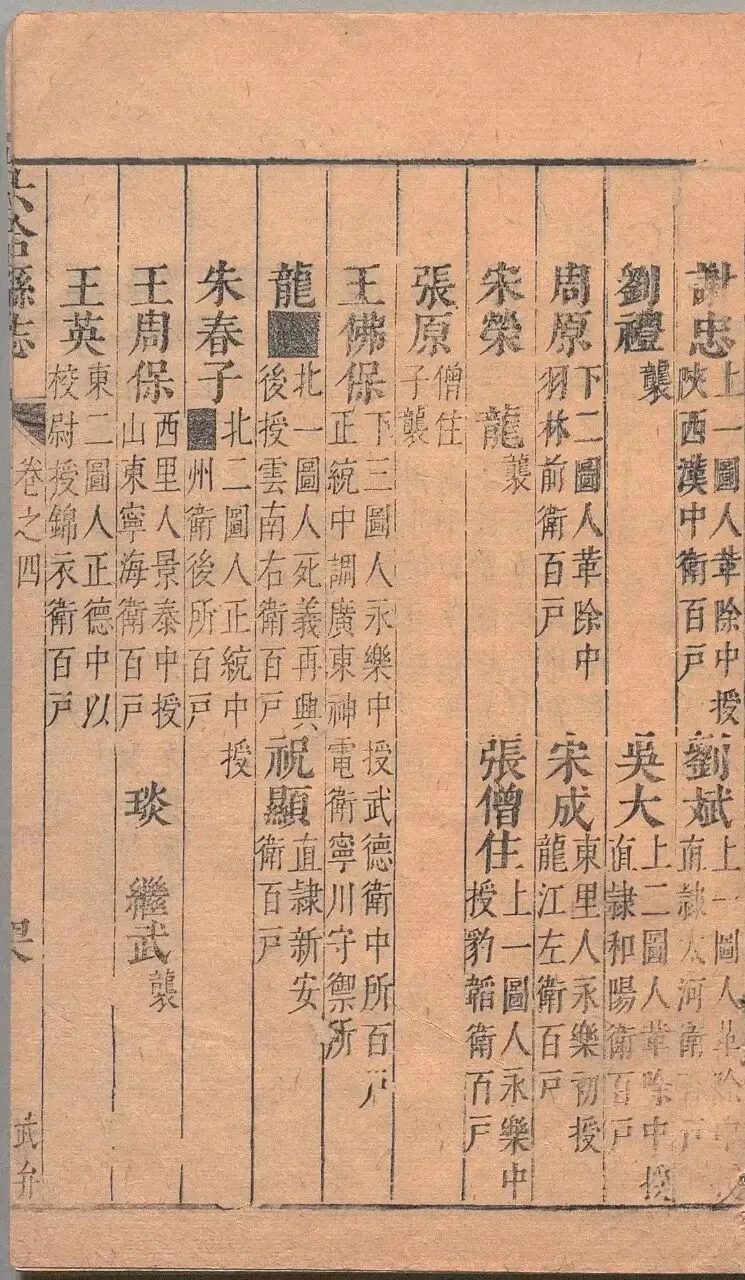 謝忠 上一圖人革除中授陝西漢中衛百戶 劉斌 上一圖人革除中 直隸大河衛 戶
劉禮 襲 吳大 上二圖人革除中授直隸和陽衛百戶
周原 下二圖人革除中羽林前衛百戶 宋成 東里人永樂初授龍江左衛百戶
宋榮 龍 襲 張僧住 上一圖人永樂中授豹韜衛百戶
張原 僧住子襲
王佛保 下三圖人永樂中授武德衛中所百戶正統中調廣東神電衛寧川守禦所
龍■ 北一圖人死義再興後授雲南右衛百戶 祝顯 直隸新安衛百戶
朱春子 北二圖人正統中授■州衛後所百戶
王周保 西里人景泰中授山東寧海衛百戶 琰 繼武 襲
王英 東二圖人正德中以校尉授錦衣衛百戶
六合縣志 卷之四 武弁